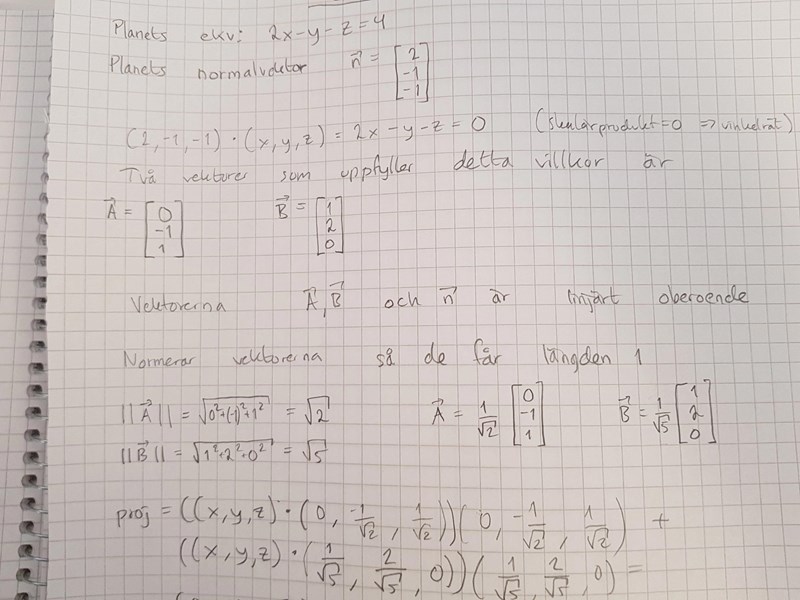 Planets ekv: 2x-y-z=4
Planets normalvektor n⃗ = [2 -1 -1]
(2,-1,-1)·(x,y,z) = 2x-y-z=0 (skalärprodukt=0 ⇒ vinkelrät)
Två vektorer som uppfyller detta villkor är
A⃗ = [0 -1 1] B⃗ = [1 2 0]
Vektorerna A⃗, B⃗ och n⃗ är linjärt oberoende
Normerar vektorerna så de får längden 1
||A⃗|| = √(0²+(-1)²+1²) = √2 A⃗ = 1/√2 [0 -1 1] B⃗ = 1/√5 [1 2 0]
||B⃗|| = √(1²+2²+0²) = √5
proj = ((x,y,z)·(0, -1/√2, 1/√2))(0, -1/√2, 1/√2) +
((x,y,z)·(1/√5, 2/√5, 0))(1/√5, 2/√5, 0) =